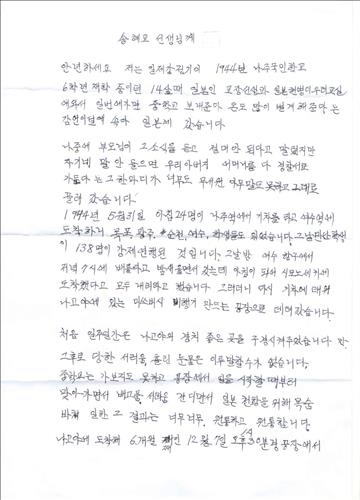 송혜교 선생님께
안녕하세요 저는 일제강점기에 1944년 나주국민학교
6학년 재학 중이던 14살때 일본인 교장선생과 일본헌병이 우리교실
에 와서 일본에 가면 중학교 보내준다 돈도 많이 벌게 해준다는
감언이설에 속아 일본에 갔습니다.
나중에 부모님이 그 소식을 듣고 절대 안된다고 말렸지만
자기네 말 안 들으면 우리 아버지 어머니를 다 경찰서로
가둔다는 그 한마디가 너무도 무서워 아무말도 못하고 그대로
끌려 갔습니다.
1944년 5월31일 아침 24명이 나주역에서 기차를 타고 여수항에
도착하니 목포, 광주, 순천, 여수, 학생들도 와있습니다. 그날
이 138명이 강제연행된 것입니다. 그날 밤 여수 항구에서
저녁 7시에 배를 타고 밤새 울면서 갔는데 아침이 되어 시모노세키에
도착했다고 모두 내리라고 했습니다. 그러더니 다시 기차에 태워
나고야에 있는 미쓰비시 비행기 만드는 공장으로 데려갔습니다.
처음 일주일간은 나고야의 경치 좋은 곳을 구경시켜주었습니다
그후로 당한 서러움, 흘린 눈물은 이루 말할수가 없습니다.
중학교는 가보지도 못하고 공장에서 일을 시작할 때부터
맞아가면서 배고픔, 서러움 견디면서 일본 전쟁을 위해 목숨
바쳐 일한 그 결과는 너무너무 원통하고 원통합니다.
나고야에 도착해 6개월 째인 12월7일 오후 1시30분경 공장에서